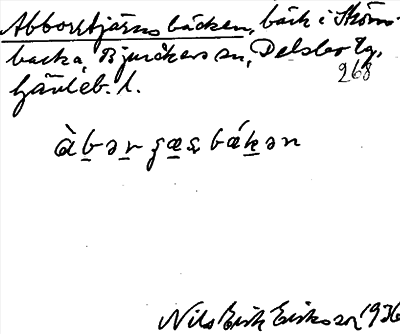 Abborrtjärnsbäcken, bäck i Ström-
backa, Bjuråkers sn, Delsbo tg,
Gävleb. l.
268
Nils Erik Eriksson 1936